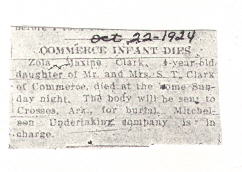 oct 22-1924
COMMERCE INFANT DIES
Zola Maxine Clark, 4-year-old
daughter of Mr. and Mrs. S. T. Clark
of Commerce, died at the home Sun-
day night. The body will be sent to
Crosses, Ark., for burial. Mitchel-
son Undertaking company is in
charge.